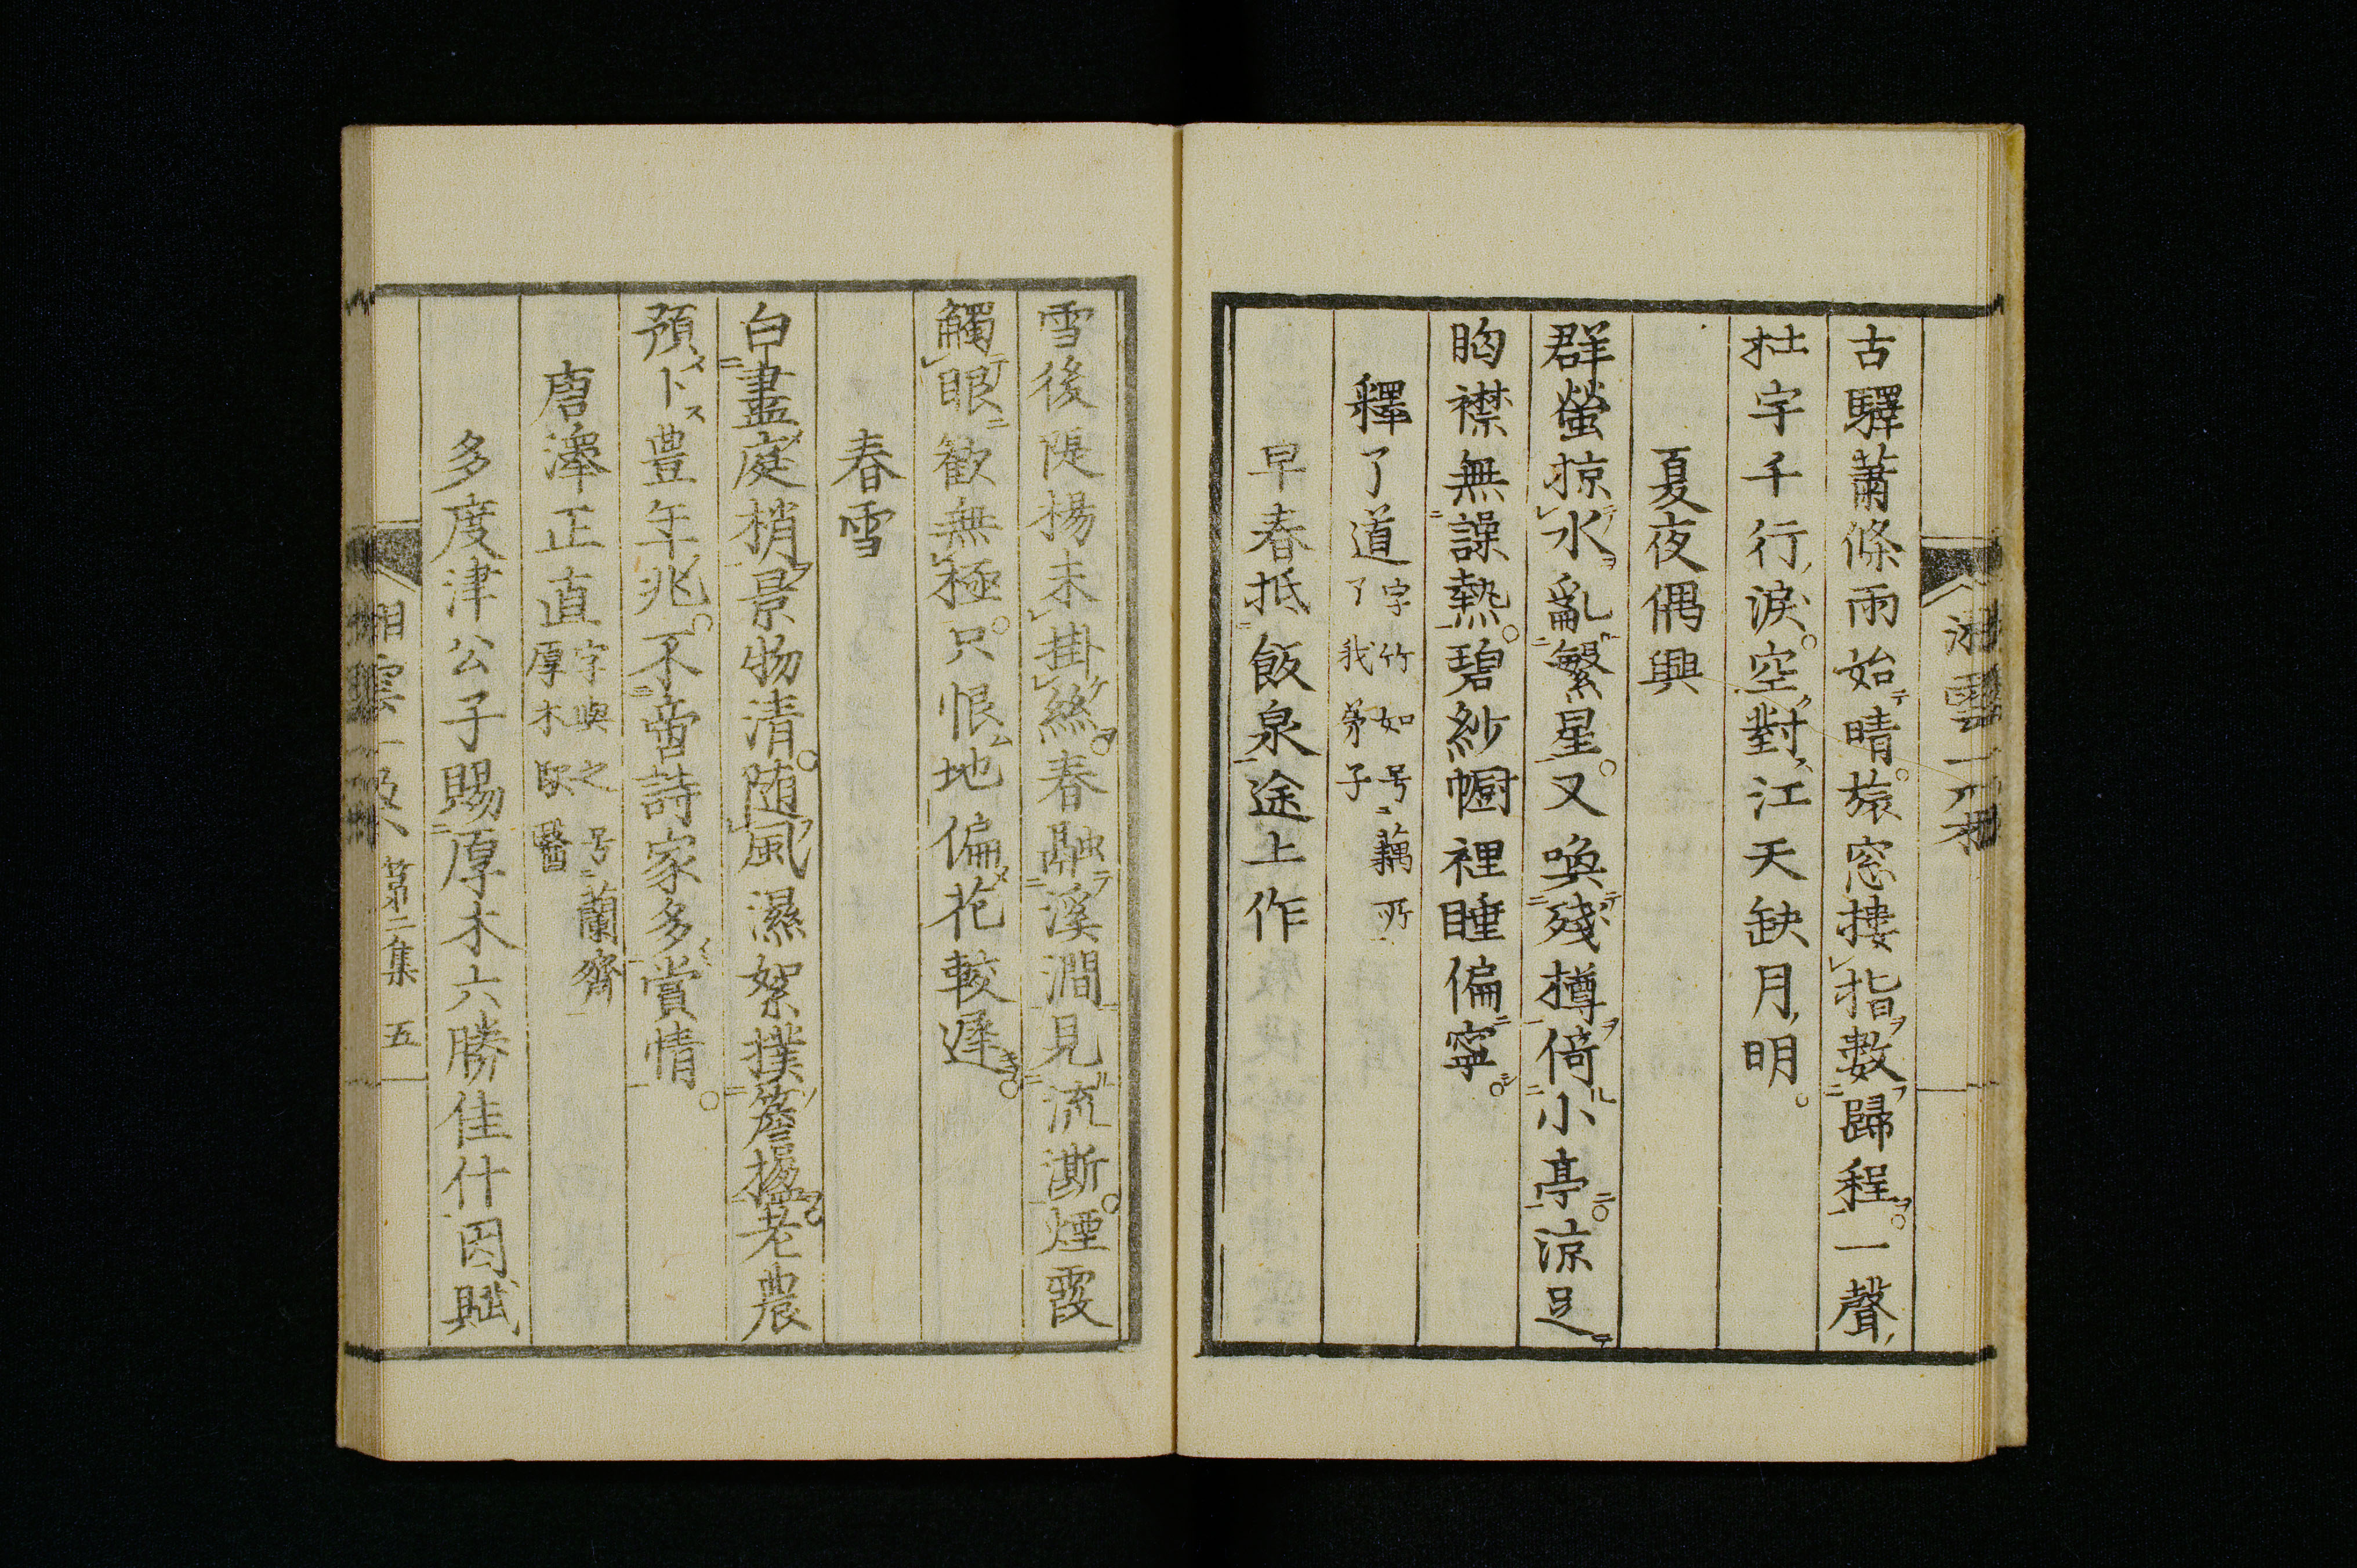 古驛蕭條雨始晴旅窓摟指數歸程一聲
杜宇千行淚空對江天缺月明
夏夜偶興
群螢掠水亂繁星又喚殘樽倚小亭涼足
胸襟無譟熱碧紗幮裡睡偏寧
釋了道 字竹如号藕所 了我弟子
早春抵飯泉途上作
雪後隄楊未掛絲春融溪澗見流澌煙霞
觸眼歓無極只恨地偏花較遲
春雪
白盡庭梢景物清随風濕絮撲簷楹老農
預卜豊年兆不啻詩家多賞情
唐澤正直 字興之号蘭齋 厚木 醫
多度津公子賜厚木六勝佳什因賦
湘雲 第二集 五